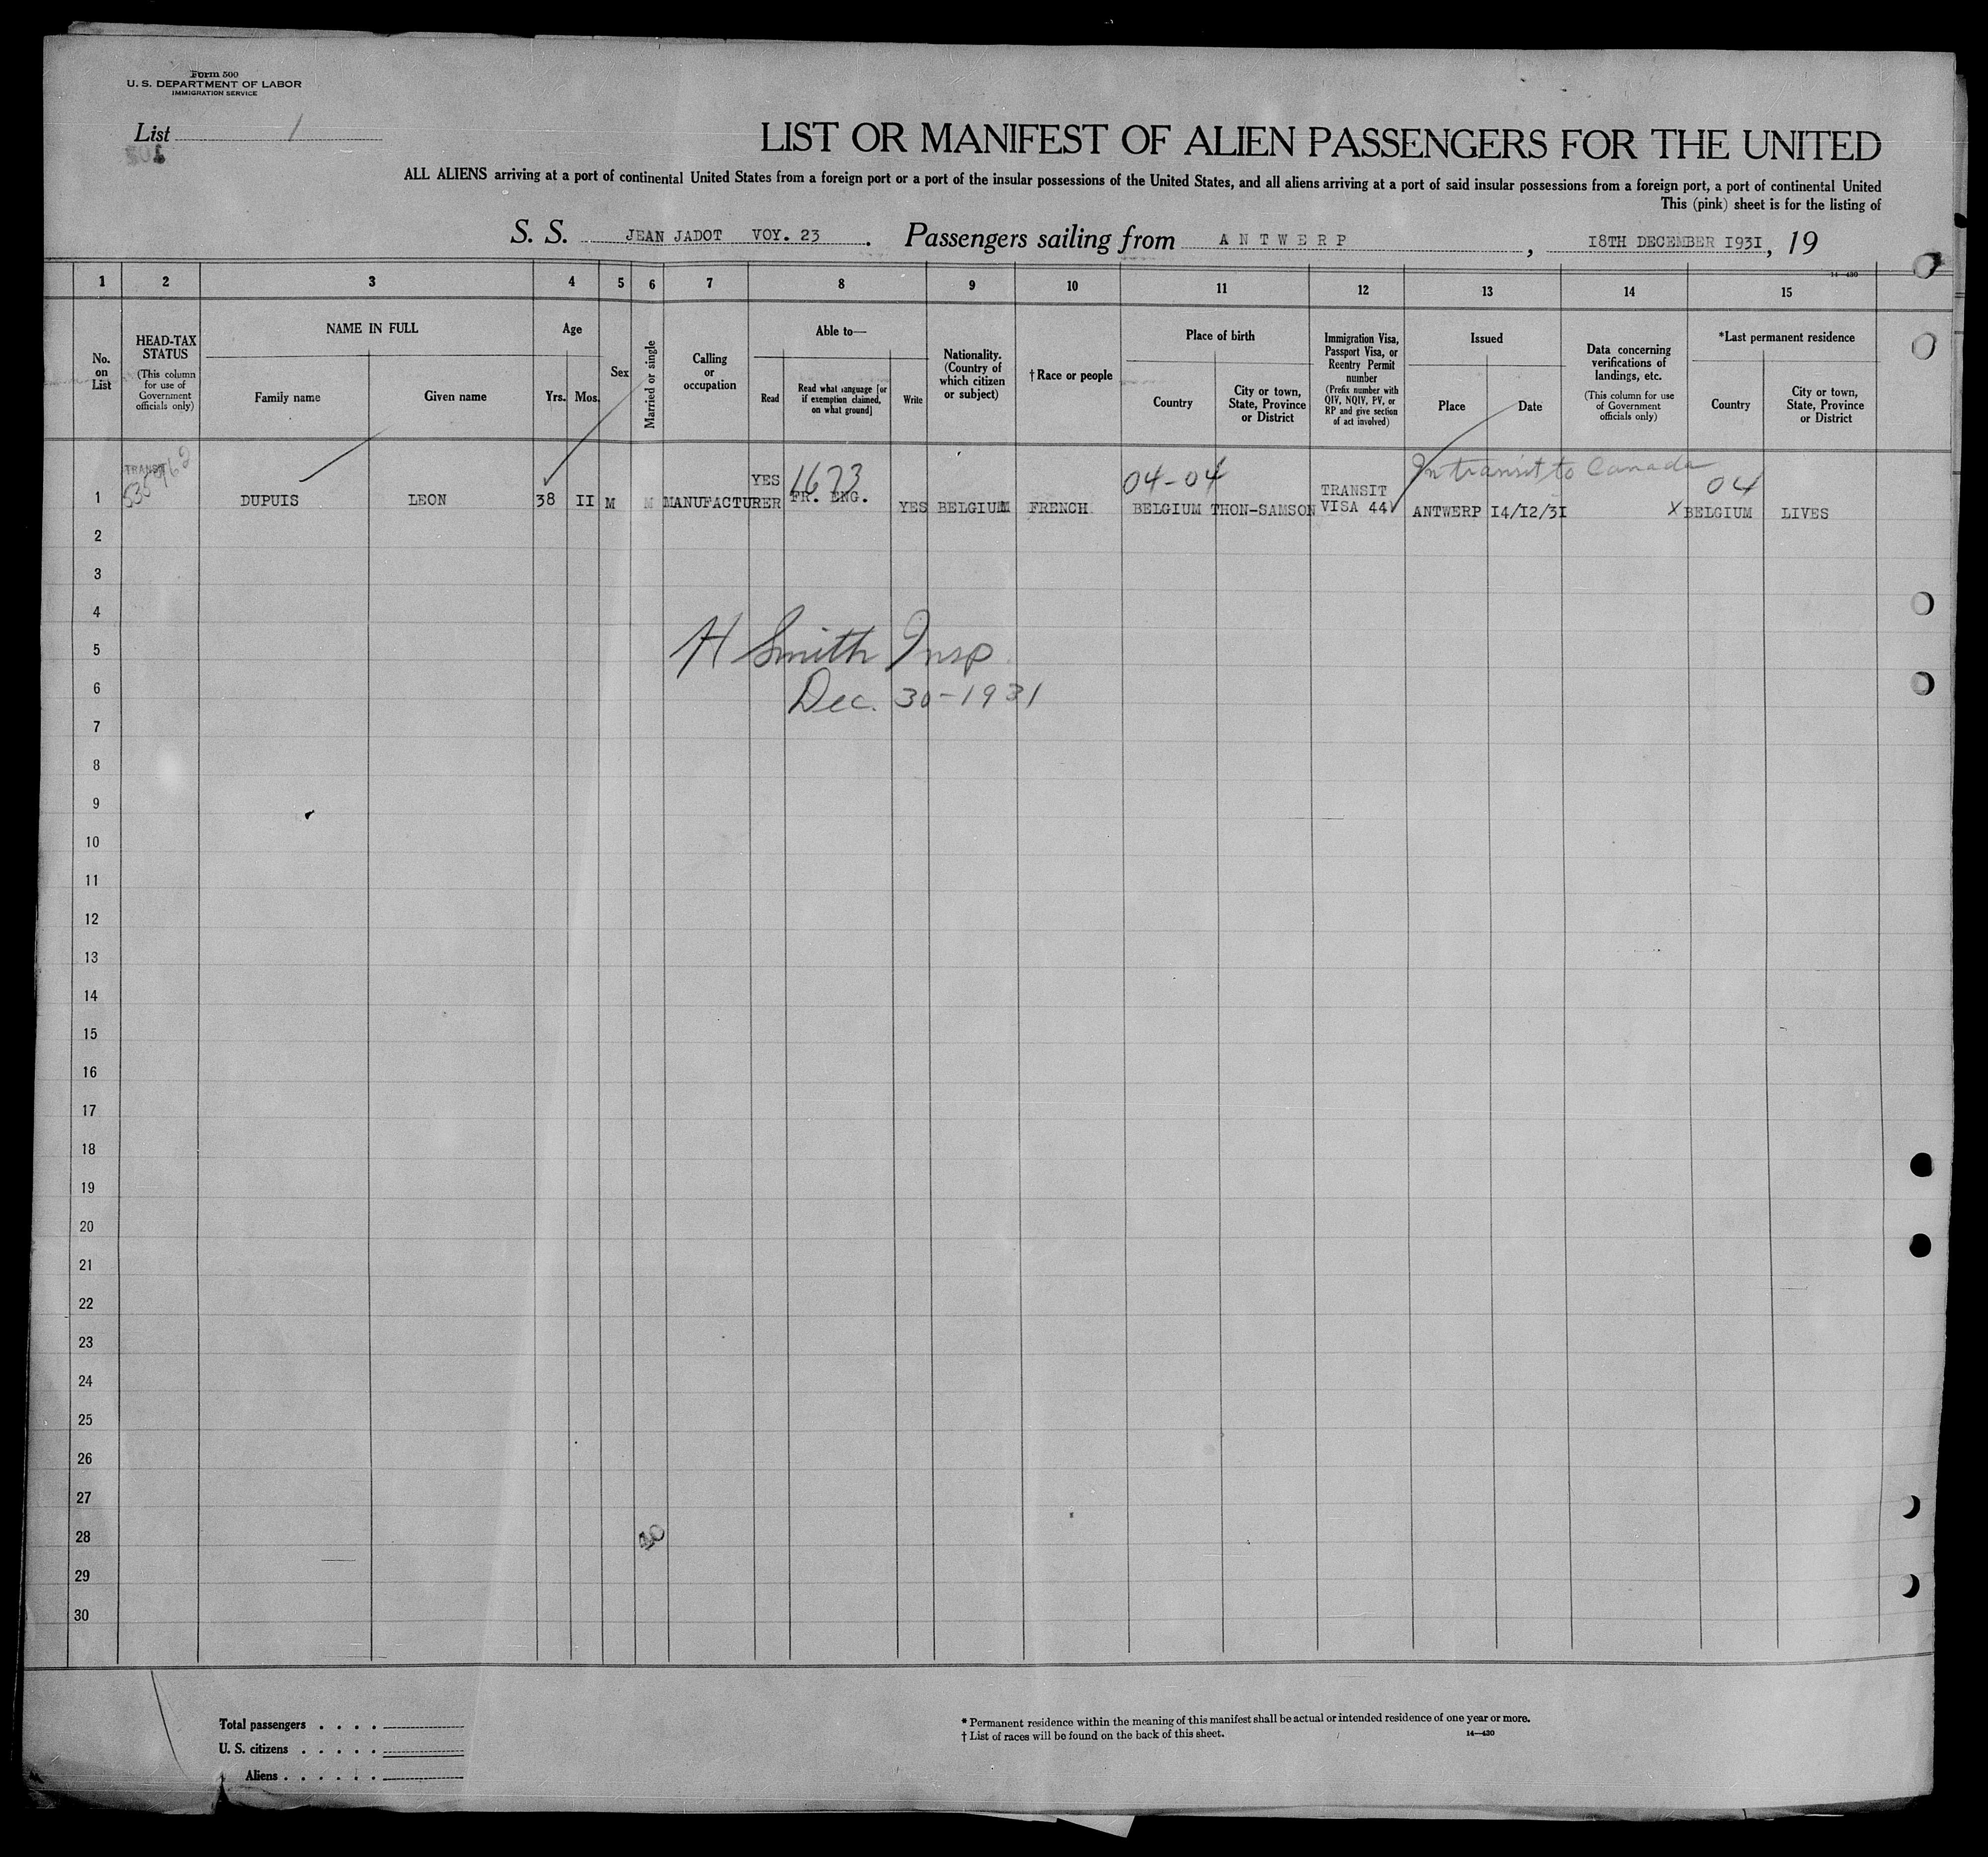 Form 500
U. S. DEPARTMENT OF LABOR
IMMIGRATION SERVICE
List 1
LIST OR MANIFEST OF ALIEN PASSENGERS FOR THE UNITED
ALL ALIENS arriving at a port of continental United States from a foreign port or a port of the insular possessions of the United States, and all aliens arriving at a port of said insular possessions from a foreign port, a port of continental United
This (pink) sheet is for the listing of
S. S. JEAN JADOT VOY. 23 . Passengers sailing from ANTWERP , 18TH DECEMBER 1931, 19
14—430
1 2 3 4 5 6 7 8 9 10 11 12 13 14 15
No. on List
HEAD-TAX STATUS
(This column for use of Government officials only)
NAME IN FULL
Family name
Given name
Age
Yrs. Mos.
Sex
Married or single
Calling or occupation
Able to—
Read
Read what language [or if exemption claimed, on what ground]
Write
Nationality. (Country of which citizen or subject)
† Race or people
Place of birth
Country
City or town, State, Province or District
Immigration Visa, Passport Visa, or Reentry Permit number
(Prefix number with QIV, NQIV, PV, or RP and give section of act involved)
Issued
Place
Date
Data concerning verifications of landings, etc.
(This column for use of Government officials only)
*Last permanent residence
Country
City or town, State, Province or District
TRANSIT
YES 1673 04-04 In transit to Canada 04
1 DUPUIS LEON 38 II M M MANUFACTURER FR. ENG. YES BELGIUM FRENCH BELGIUM THON-SAMSON TRANSIT VISA 44 ANTWERP I4/I2/3I X BELGIUM LIVES
2
3
4
5
H Smith Insp
6
Dec. 30-1931
7
8
9
10
11
12
13
14
15
16
17
18
19
20
21
22
23
24
25
26
27
28
29
30
Total passengers . . . .
U. S. citizens . . . . .
Aliens . . . . . .
* Permanent residence within the meaning of this manifest shall be actual or intended residence of one year or more.
† List of races will be found on the back of this sheet.
14—430